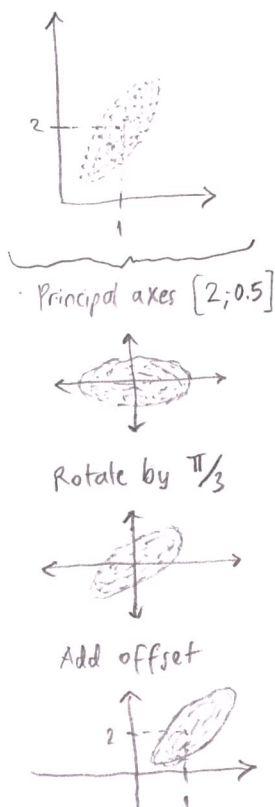 2
1
Principal axes [2;0.5]
Rotate by π/3
Add offset
2
1